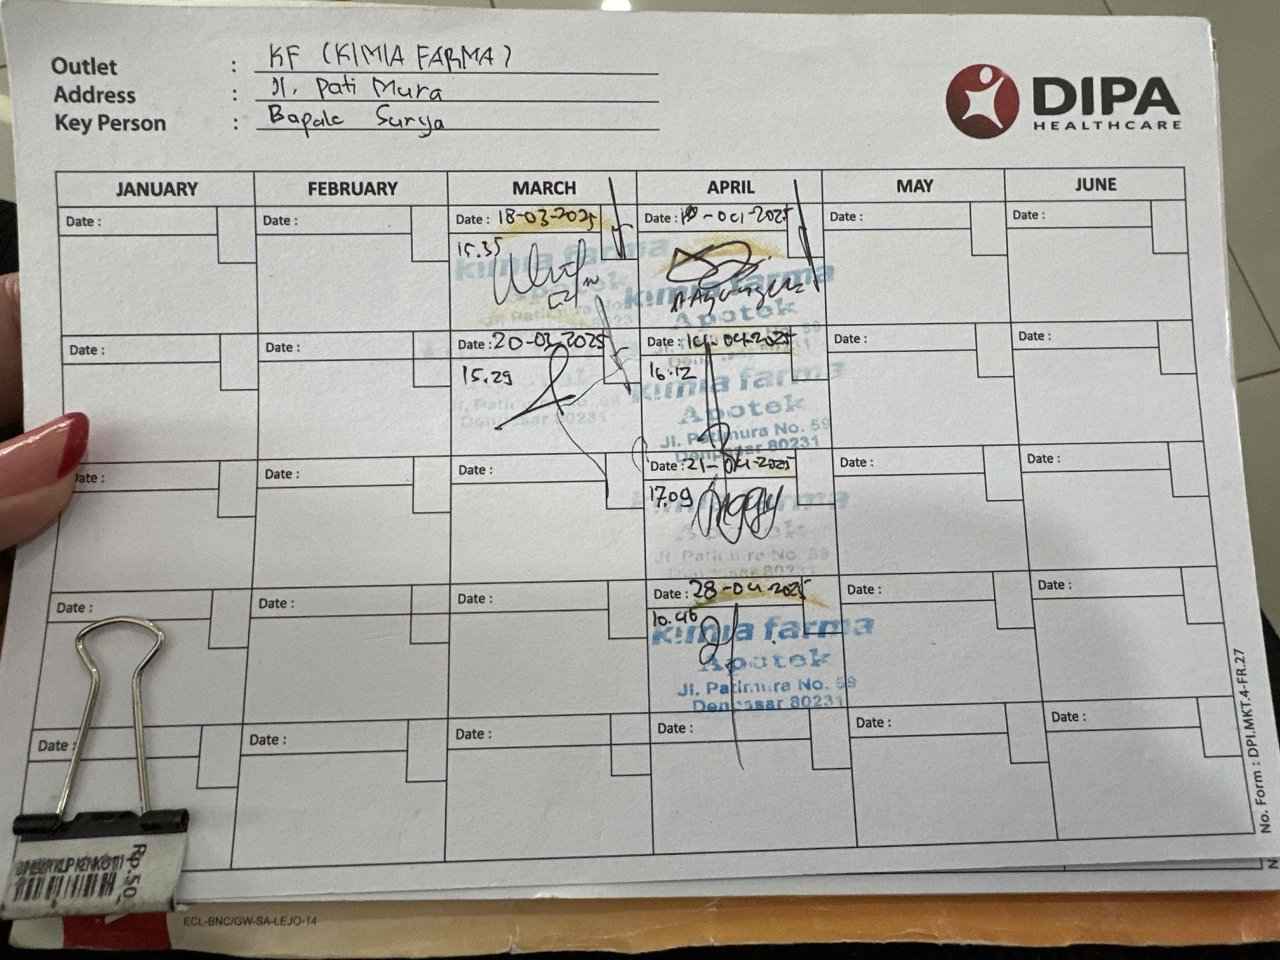 Outlet : KF (KIMIA FARMA)
Address : Jl. Pati Mura
Key Person : Bapak Surya
DIPA
HEALTHCARE
JANUARY FEBRUARY MARCH APRIL MAY JUNE
Date : Date : Date : 18-03-2025 Date : -04-2025 Date : Date :
15.35
kimia farma
Apotek
kimia farma
Apotek
Date : Date : Date : 20-03-2025 Date : 14-04-2025 Date : Date :
15.29 16.12
kimia farma
Apotek
Denpasar 80231
Jl. Patimura No. 59
Denpasar 80231
Date : Date : Date : Date : 21-04-2025 Date : Date :
17.09 Anggy
kimia farma
Jl. Patimura No. 59
Denpasar 80231
Date : Date : Date : Date : 28-04-2025 Date : Date :
10.46
kimia farma
Apotek
Jl. Patimura No. 59
Denpasar 80231
Date : Date : Date : Date : Date : Date :
No. Form : DPI.MKT.4-FR.27
Rp.50,
ECL-BNC/GW-SA-LEJO-14